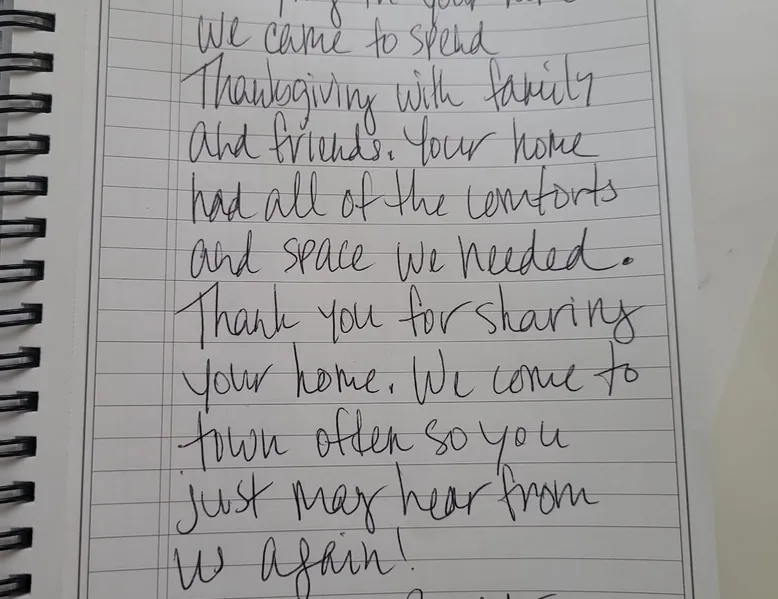 in your
We came to spend
Thanksgiving with family
and friends. Your home
had all of the comforts
and space we needed.
Thank you for sharing
your home. We come to
town often so you
just may hear from
us again!